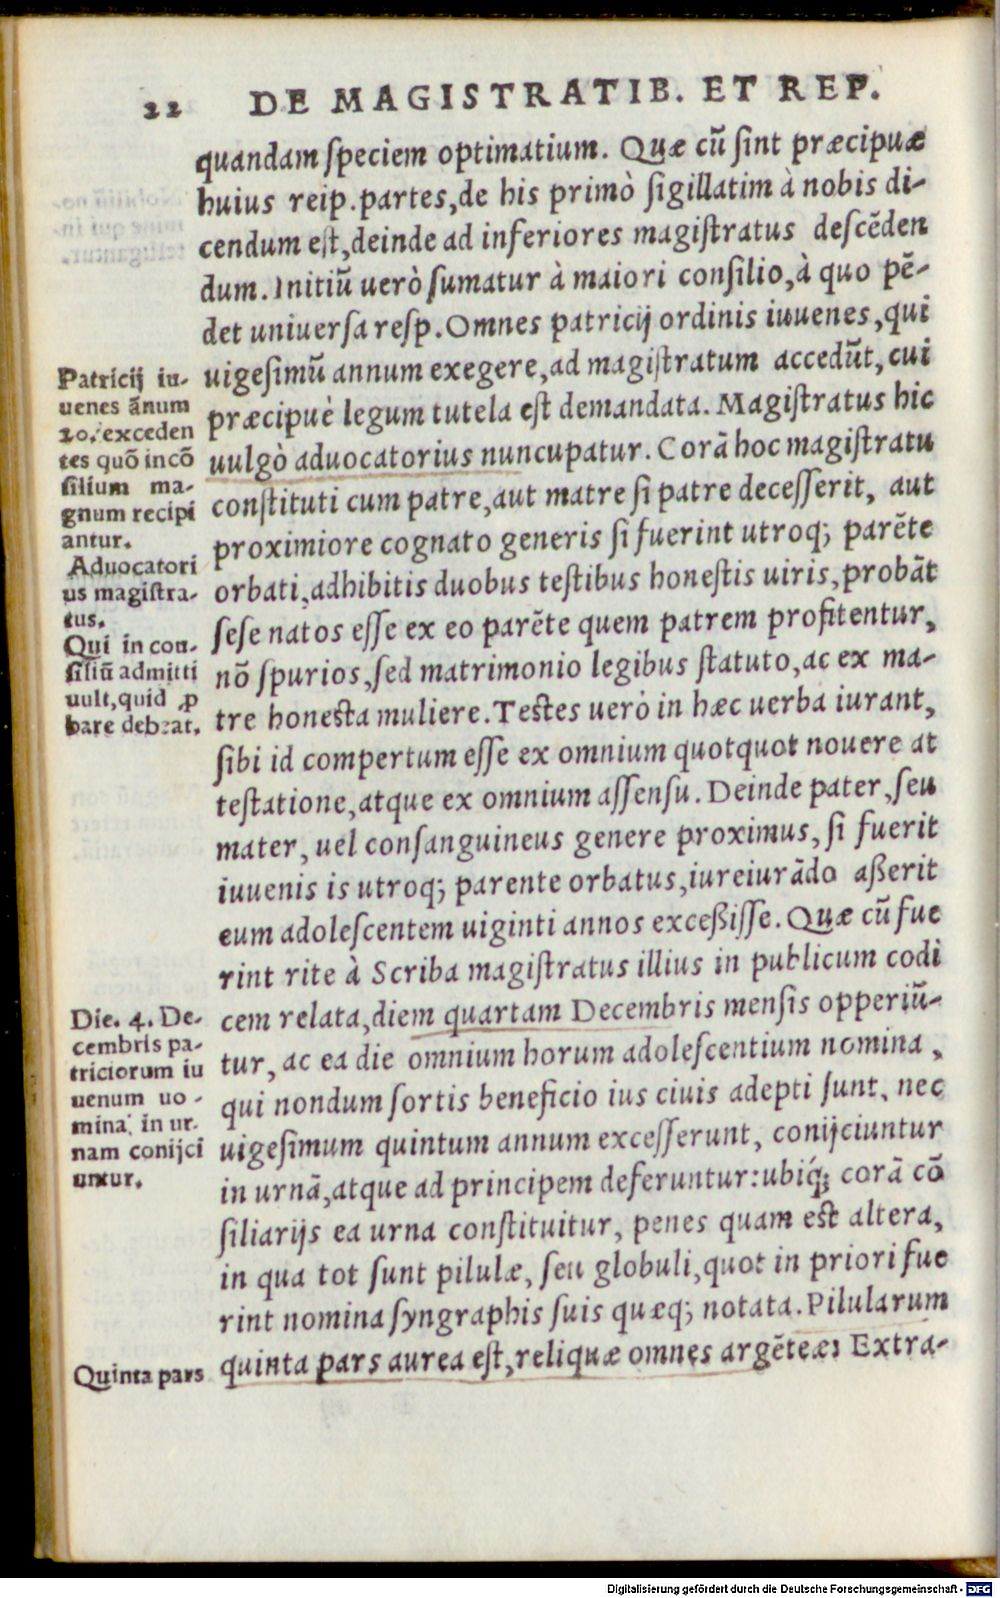 22 DE MAGISTRATIB. ET REP.
quandam ſpeciem optimatium. Quæ cũ ſint præcipuæ
huius reip. partes, de his primò ſigillatim à nobis di-
cendum eſt, deinde ad inferiores magiſtratus deſcẽden
dum. Initiũ uerò ſumatur à maiori conſilio, à quo pẽ-
det uniuerſa reſp. Omnes patricij ordinis iuuenes, qui
uigeſimũ annum exegere, ad magiſtratum accedũt, cui
præcipuè legum tutela eſt demandata. Magiſtratus hic
uulgò aduocatorius nuncupatur. Corã hoc magiſtratu
conſtituti cum patre, aut matre ſi patre deceſſerit, aut
proximiore cognato generis ſi fuerint utroq; parẽte
orbati, adhibitis duobus teſtibus honeſtis uiris, probãt
ſeſe natos eſſe ex eo parẽte quem patrem profitentur,
nõ ſpurios, ſed matrimonio legibus ſtatuto, ac ex ma-
tre honeſta muliere. Teſtes uerò in hæc uerba iurant,
ſibi id compertum eſſe ex omnium quotquot nouere at
teſtatione, atque ex omnium aſſenſu. Deinde pater, ſeu
mater, uel conſanguineus genere proximus, ſi fuerit
iuuenis is utroq; parente orbatus, iureiurãdo aßerit
eum adoleſcentem uiginti annos exceßiſſe. Quæ cũ fue
rint rite à Scriba magiſtratus illius in publicum codi
cem relata, diem quartam Decembris menſis opperiũ-
tur, ac ea die omnium horum adoleſcentium nomina,
qui nondum ſortis beneficio ius ciuis adepti ſunt, nec
uigeſimum quintum annum exceſſerunt, conijciuntur
in urnã, atque ad principem deferuntur: ubiq́; corã cõ
ſiliarijs ea urna conſtituitur, penes quam eſt altera,
in qua tot ſunt pilulæ, ſeu globuli, quot in priori fue
rint nomina ſyngraphis ſuis quæq; notata. Pilularum
quinta pars aurea eſt, reliquæ omnes argẽteæ: Extra-
Patricij iu-
uenes ãnum
20. exceden
tes quõ incõ
ſilium ma-
gnum recipi
antur.
Aduocatori
us magiſtra-
tus.
Qui in con-
ſiliũ admitti
uult, quid ꝓ
bare debeat.
Die. 4. De-
cembris pa-
triciorum iu
uenum no-
mina in ur-
nam conijci
untur.
Quinta pars
Digitalisierung gefördert durch die Deutsche Forschungsgemeinschaft - DFG